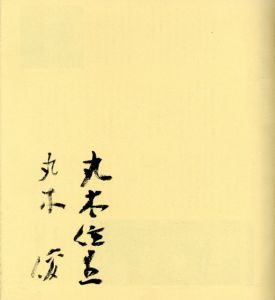 丸木位里
丸木俊